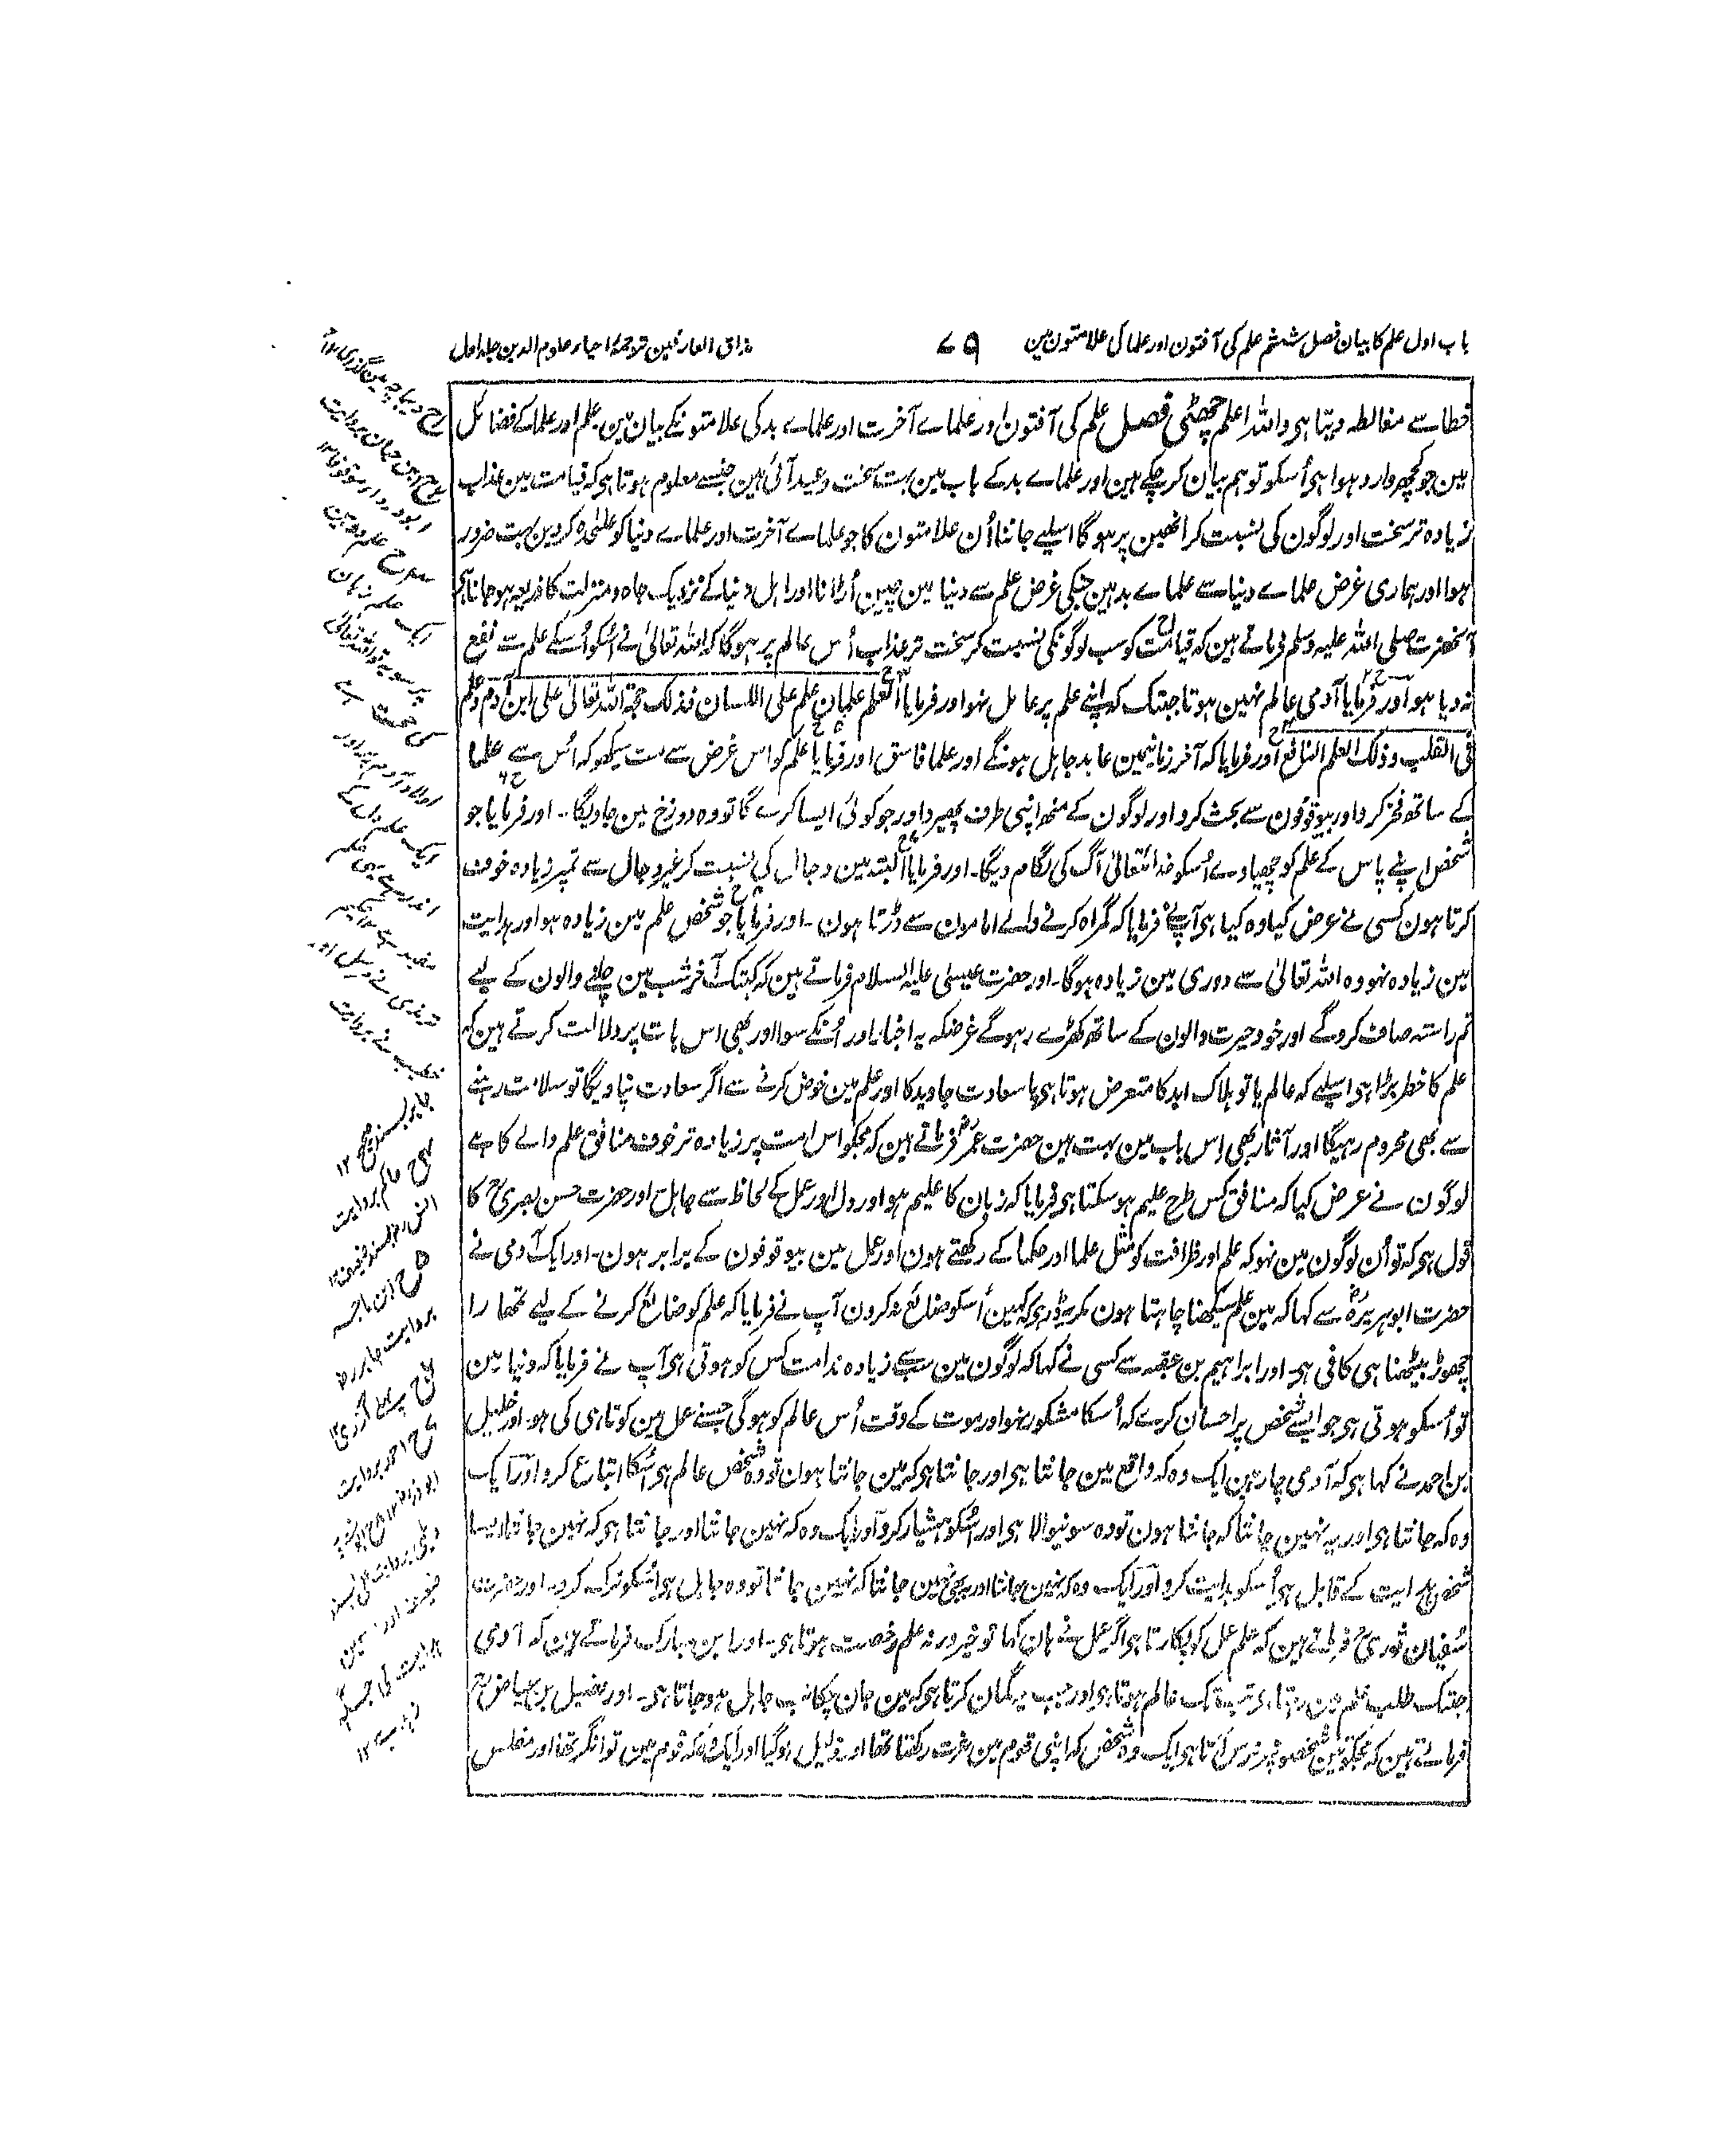 باب اول علم کا بیان فصل ششم علم کی آفتون اور علما کی علامتون مین
۷۹
مذاق العارفین ترجمۂ احیاء علوم الدین جلد اول
خطا سے مغالطہ دیتا ہی واللہ اعلم چھٹی فصل علم کی آفتون اور علماے آخرت اور علماے بد کی علامتونکے بیان مین علم اور علما کے فضائل
مین جو کچھ وارد ہوا ہی اُسکو تو ہم بیان کر چکے ہین اور علماے بد کے باب مین بہت سخت وعید آئی ہین جنسے معلوم ہوتا ہی کہ قیامت مین عذاب
زیادہ تر سخت اور لوگون کی نسبت کر انھین پر ہو گا اسلیے جاننا اُن علامتون کا جو علماے آخرت اور علماے دنیا کو علٰحدہ کردین بہت ضرور
ہوا اور ہماری غرض علماے دنیا سے علماے بد ہین جنکی غرض علم سے دنیا مین چین اُڑانا اور اہل دنیا کے نزدیک جاہ و منزلت کا ذریعہ ہو جانا ہی
آنحضرت صلی اللہ علیہ وسلم فرماتے ہین کہ قیامت کو سب لوگونکی نسبت کر سخت تر عذاب اُس عالم پر ہو گا کہ اللہ تعالیٰ نے اُسکو اُسکے علم سے نفع
نہ دیا ہو اور فرمایا آدمی عالم نہین ہوتا جبتک کہ اپنے علم پر عامل نہو اور فرمایا العلم علمان علم علی اللسان فذلک حجۃ اللہ تعالیٰ علی ابن آدم وعلم
فی القلب وذلک العلم النافع اور فرمایا کہ آخر زمانیمین عابد جاہل ہونگے اور علما فاسق اور فرمایا علم کو اس غرض سے مت سیکھو کہ اُس سے علما
کے ساتھ فخر کرو اور بیوقوفون سے بحث کرو اور لوگون کے منھ اپنی طرف پھیرو اور جو کوئی ایسا کرے گا تو وہ دوزخ مین جاویگا ۔ اور فرمایا جو
شخص اپنے پاس کے علم کو چھپاوے اُسکو خدا تعالیٰ آگ کی لگام دیگا ۔ اور فرمایا البتہ مین دجال کی نسبت کر غیر دجال سے تمپر زیادہ خوف
کرتا ہون کسی نے عرض کیا وہ کیا ہی آپنے فرمایا کہ گمراہ کرنے والے امامون سے ڈرتا ہون ۔ اور فرمایا جو شخص علم مین زیادہ ہو اور ہدایت
مین زیادہ نہو وہ اللہ تعالیٰ سے دوری مین زیادہ ہو گا ۔ اور حضرت عیسیٰ علیہ السلام فرماتے ہین کہ کبتک آخر شب مین چلنے والون کے لیے
تم راستہ صاف کروگے اور خود حیرت والون کے ساتھ کھڑے رہوگے غرضکہ یہ اخبار اور اُنکے سوا اور بھی اس بات پر دلالت کرتے ہین کہ
علم کا خطر بڑا ہی اسلیے کہ عالم یا تو ہلاک ابد کا متعرض ہوتا ہی یا سعادت جاوید کا اور علم مین خوض کرنے سے اگر سعادت نپاویگا تو سلامت رہنے
سے بھی محروم رہیگا اور آثار بھی اِس باب مین بہت ہین حضرت عمرؓ فرماتے ہین کہ مجکو اس امت پر زیادہ تر خوف منافق علم والے کا ہے
لوگون نے عرض کیا کہ منافق کس طرح علیم ہو سکتا ہی فرمایا کہ زبان کا علیم ہو اور دل اور عمل کے لحاظ سے جاہل اور حضرت حسن بصریؒ کا
قول ہی کہ تو اُن لوگون مین نہو کہ علم اور ظرافت کو مثل علما اور حکما کے رکھتے ہون اور عمل مین بیوقوفون کے برابر ہون ۔ اور ایک آدمی نے
حضرت ابوہریرہؓ سے کہا کہ مین علم سیکھنا چاہتا ہون مگر یہ ڈر ہی کہ کہین اُسکو ضائع نہ کرون آپ نے فرمایا کہ علم کو ضائع کرنے کے لیے تمھارا
چھوڑ بیٹھنا ہی کافی ہی ۔ اور ابراہیم بن عقبہ سے کسی نے کہا کہ لوگون مین سب سے زیادہ ندامت کس کو ہوتی ہی آپ نے فرمایا کہ دنیا مین
تو اُسکو ہوتی ہی جو ایسے شخص پر احسان کرے کہ اُسکا مشکور نہو اور موت کے وقت اُس عالم کو ہوگی جسنے عمل مین کوتاہی کی ہو ۔ اور خلیل
بن احمد نے کہا ہی کہ آدمی چار ہین ایک وہ کہ واقع مین جانتا ہی اور جانتا ہی کہ مین جانتا ہون تو وہ شخص عالم ہی اُسکا اتباع کرو اور ایک
وہ کہ جانتا ہی اور یہ نہین جانتا کہ جانتا ہون تو وہ سونیوالا ہی اور اُسکو ہشیار کرو اور ایک وہ کہ نہین جانتا اور جانتا ہی کہ نہین جانتا ایسا
شخص ہدایت کے قابل ہی اُسکو ہدایت کرو اور ایک وہ کہ نہین جانتا اور یہ بھی نہین جانتا کہ نہین جانتا تو وہ جاہل ہی اُسکو ترک کرو ۔ اور حضرت
سُفیان ثوریؒ فرماتے ہین کہ علم عمل کو پکارتا ہی اگر عمل نے ہان کہا تو خیر ورنہ علم رخصت ہوتا ہی ۔ اور ابن مبارک فرماتے ہین کہ آدمی
جبتک طلب علم مین رہتا ہی تب تک عالم ہوتا ہی اور جب یہ گمان کرتا ہی کہ مین جان چکا تب جاہل ہو جاتا ہی ۔ اور فضیل بن عیاضؒ
فرماتے ہین کہ مجکو تین شخصونپر ترس آتا ہی ایک وہ شخص کہ اپنی قوم مین عزت رکھتا تھا اور ذلیل ہو گیا اور ایک وہ کہ قوم مین توانگر تھا اور مفلس
ح دیباچہ مین گذری ۱۲
ح ابن حبان بروایت
ابو درداء موقوفا ۱۲
ایک علم زبان
پر سو یہ تو اللہ تعالیٰ
کی حجت ہے
اولاد آدم پر اور
ایک علم دل کے
اندر ہے یہی علم
مفید ہے
ترمذی نے
خطیب نے بروایت
جابر بسند صحیح ۱۲
ح حاکم بروایت
انس بسند ضعیف ۱۲
ح ابن ماجہ
بروایت جابر رض
ح پہلے گذری
ح احمد بروایت
ابو ذر
دیلمی بروایت علی بسند
ضعیف اور
ہدایت کی جگہ
زہد ہے ۱۲